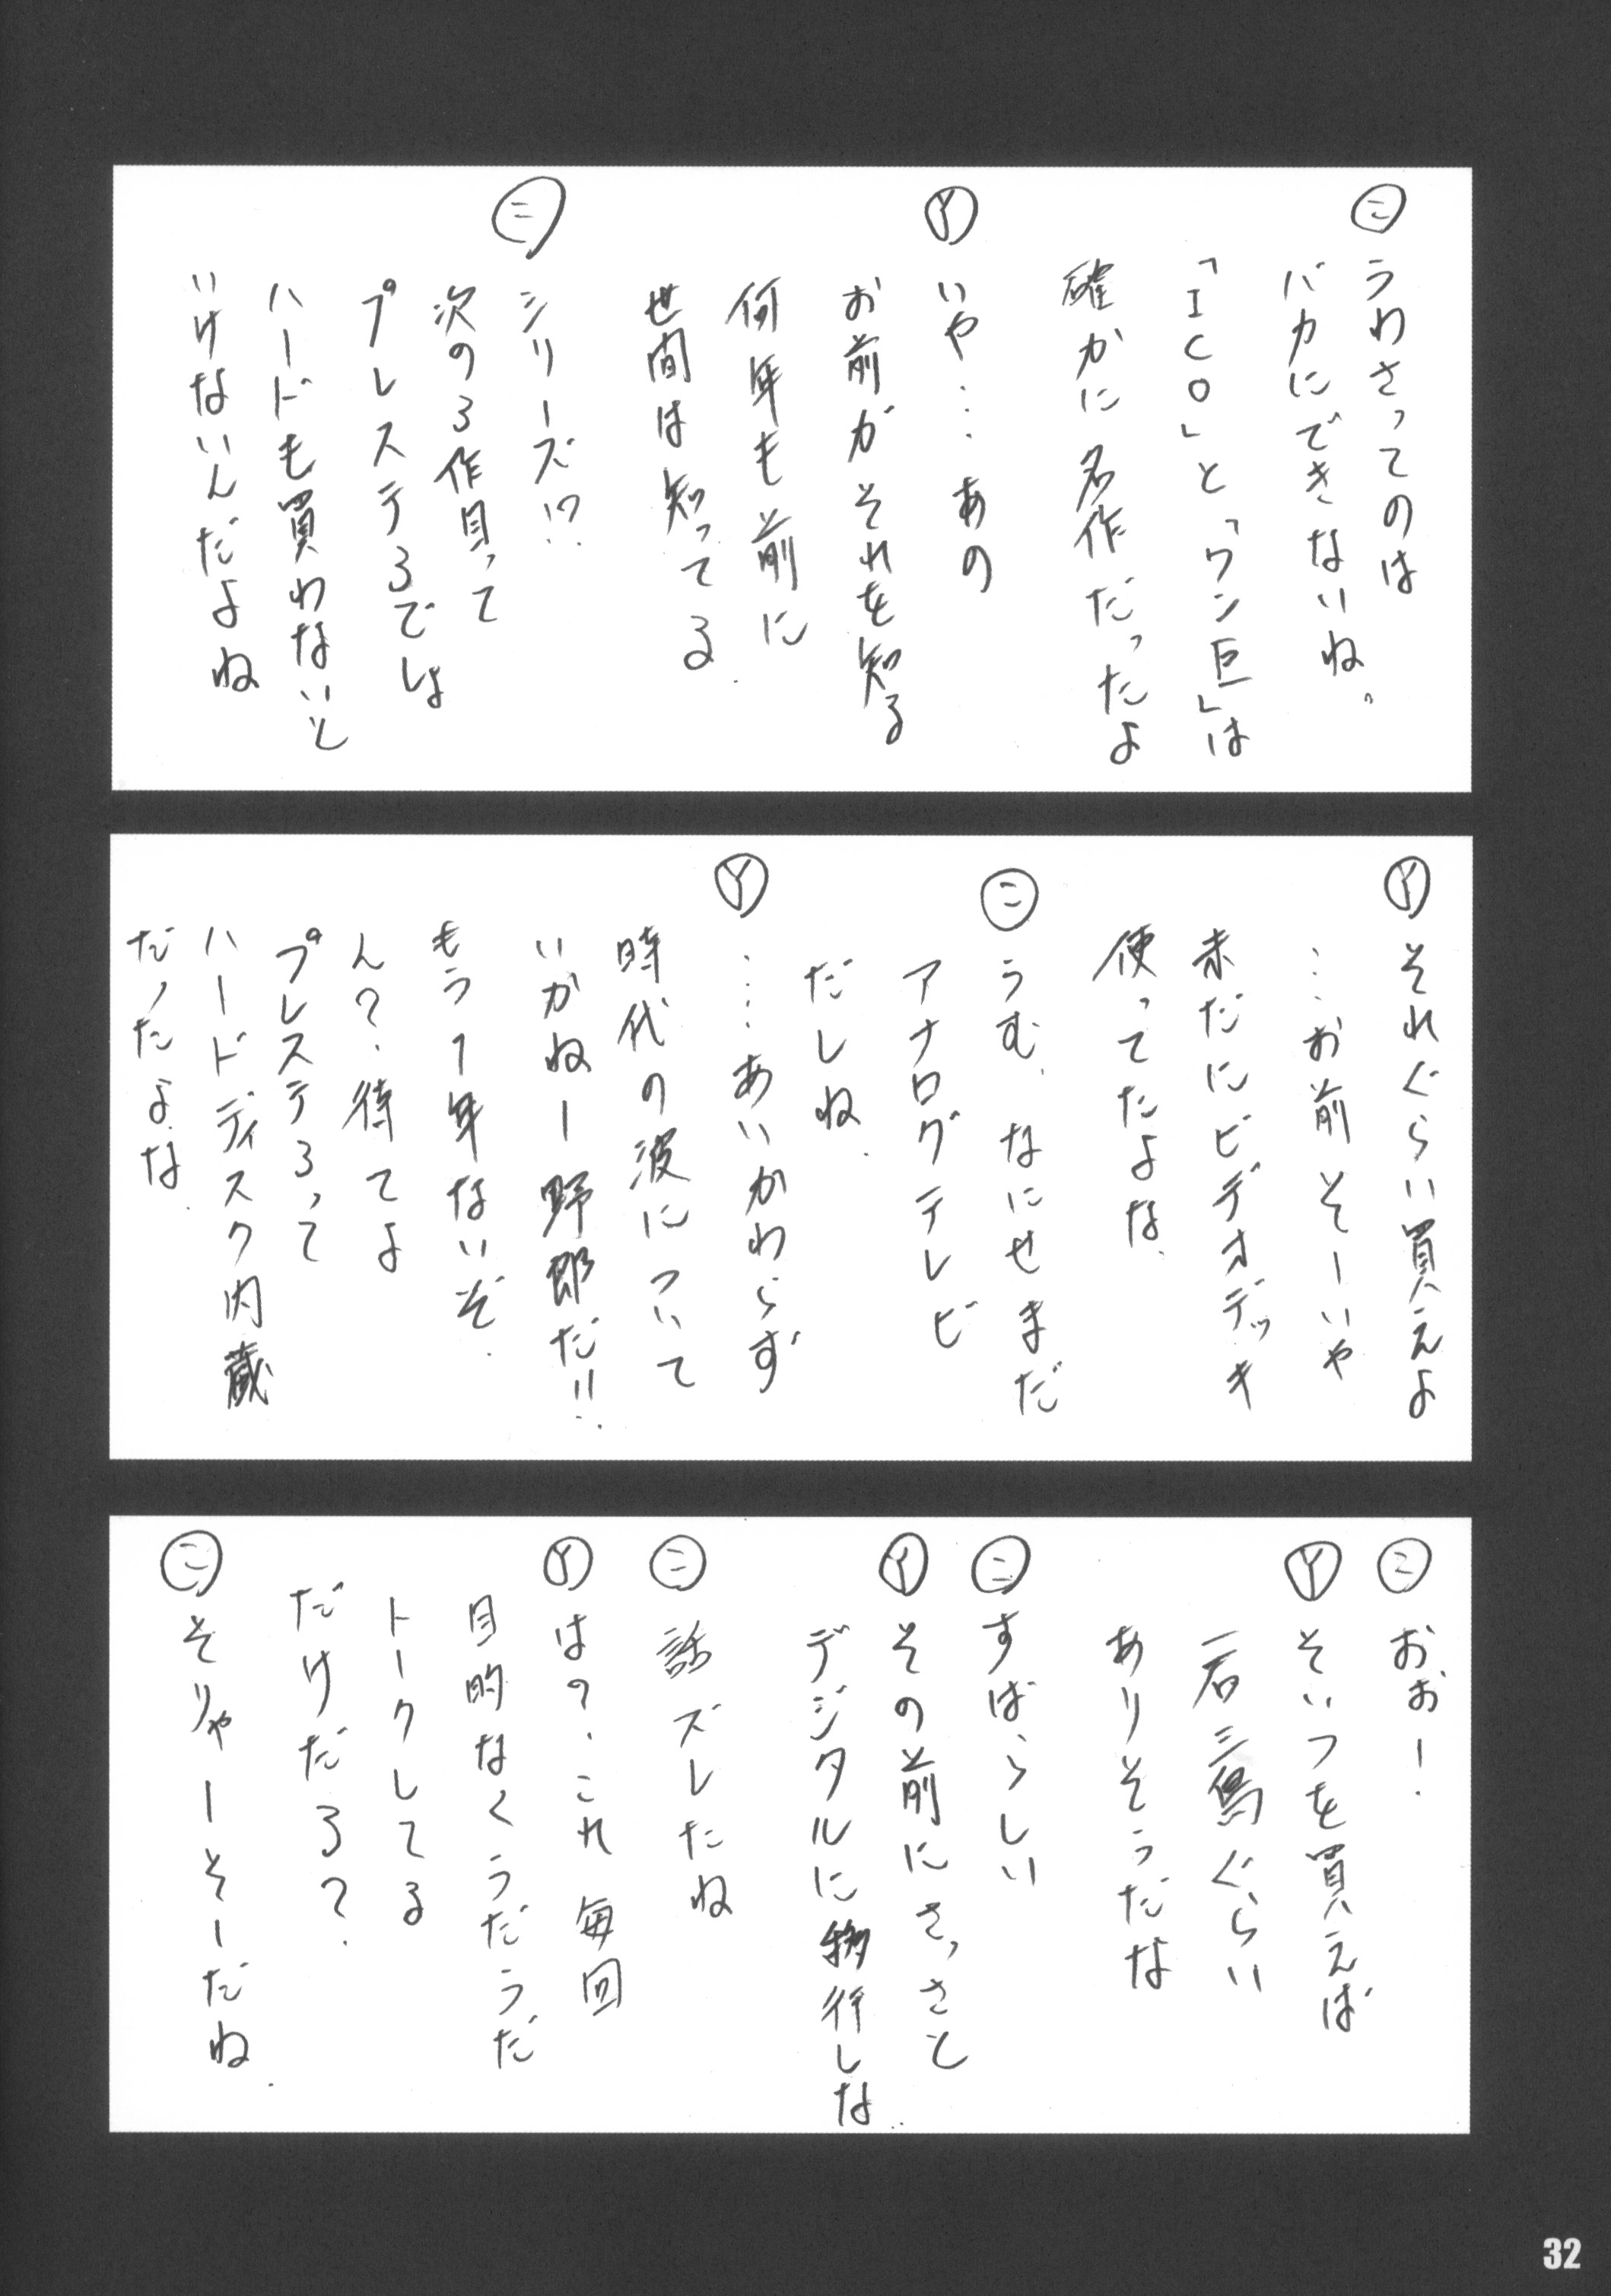 ㋙ うわさってのは
バカにできないね。
「ICO」と「ワン巨」は
確かに名作だったよ
Ⓨ いや‥‥あの
お前がそれを知る
何年も前に
世間は知ってる.
㋥ シリーズ!?
次の3作目って
プレステ3でしょ
ハードも買わないと
いけないんだよね
Ⓨ それぐらい買えよ
‥‥お前そーいや
未だにビデオデッキ
使ってたよな.
㋙ うむ. なにせまだ
アナログテレビ
だしね.
Ⓨ ‥‥あいかわらず
時代の波について
いかねー野郎だ!!
もう1年ないぞ.
ん?. 待てよ
プレステ3って
ハードディスク内蔵
だったよな.
㋙ おぉー!
Ⓨ そいつを買えば
一石三鳥ぐらい
ありそうだな
㋙ すばらしい
Ⓨ その前にさっさと
デジタルに移行しな‥
㋥ 話ズレたね
Ⓨ は?. これ毎回
目的なくうだうだ
トークしてる
だけだろ?.
㋙ そりゃーそーだね.
32